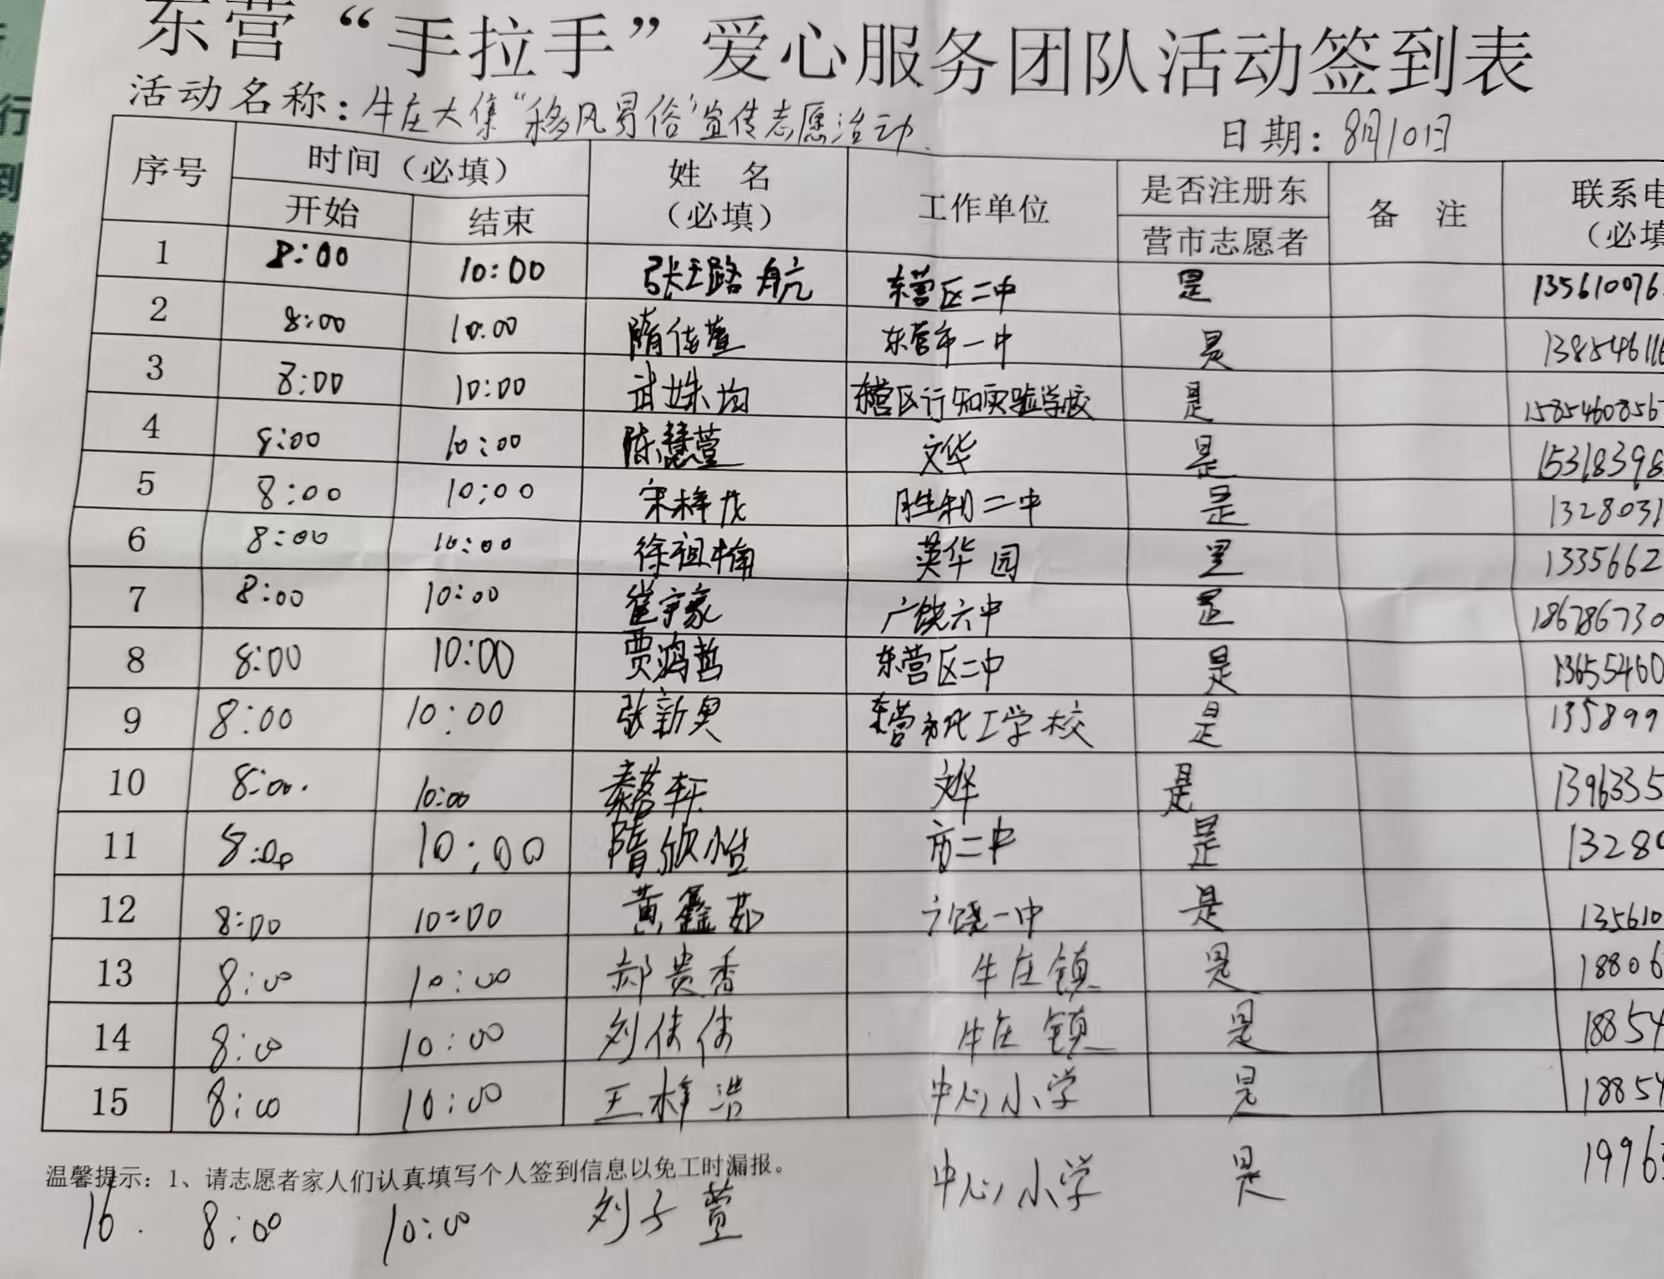 东营“手拉手”爱心服务团队活动签到表
活动名称：牛庄大集“移风易俗”宣传志愿活动. 日期：8月10日
序号 时间（必填） 姓 名（必填） 工作单位 是否注册东营市志愿者 备 注 联系电（必填
开始 结束
1 8:00 10:00 张王路航 东营区二中 是 135610076
2 8:00 10:00 隋佳萱 东营市一中 是 138546116
3 8:00 10:00 武姝均 东营区行知实验学校 是 1585460856
4 8:00 10:00 陈慧萱 文华 是 15318398
5 8:00 10:00 宋梓茂 胜利二中 是 1328031
6 8:00 10:00 徐祖楠 英华园 是 1335662
7 8:00 10:00 崔宇豪 广饶六中 是 186786730
8 8:00 10:00 贾鸿哲 东营区二中 是 13655460
9 8:00 10:00 张新奥 东营市化工学校 是 135899
10 8:00. 10:00 秦茗轩 文华 是 1396335
11 8:00 10:00 隋欣怡 市二中 是 1328
12 8:00 10:00 黄鑫茹 广饶一中 是 135610
13 8:00 10:00 郝贵香 牛庄镇 是 18806
14 8:00 10:00 刘佳佳 牛庄镇 是 18854
15 8:00 10:00 王梓浩 中心小学 是 18854
温馨提示：1、请志愿者家人们认真填写个人签到信息以免工时漏报。
16. 8:00 10:00 刘子萱 中心小学 是 1996